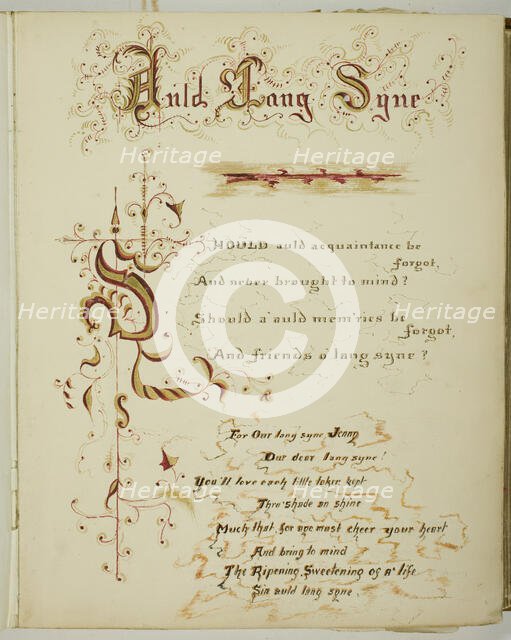 Auld Lang Syne
SHOULD auld acquaintance be
forgot,
And never brought to mind?
Should a' auld mem'ries be
forgot,
And friends o lang syne?
For Our lang syne, Jenny
Our dear lang syne!
You'll love each little token kept
Thro' shade an shine
Much that, for aye must cheer your heart
And bring to mind
The Ripening, Sweetening of a' life
Sin auld lang syne.